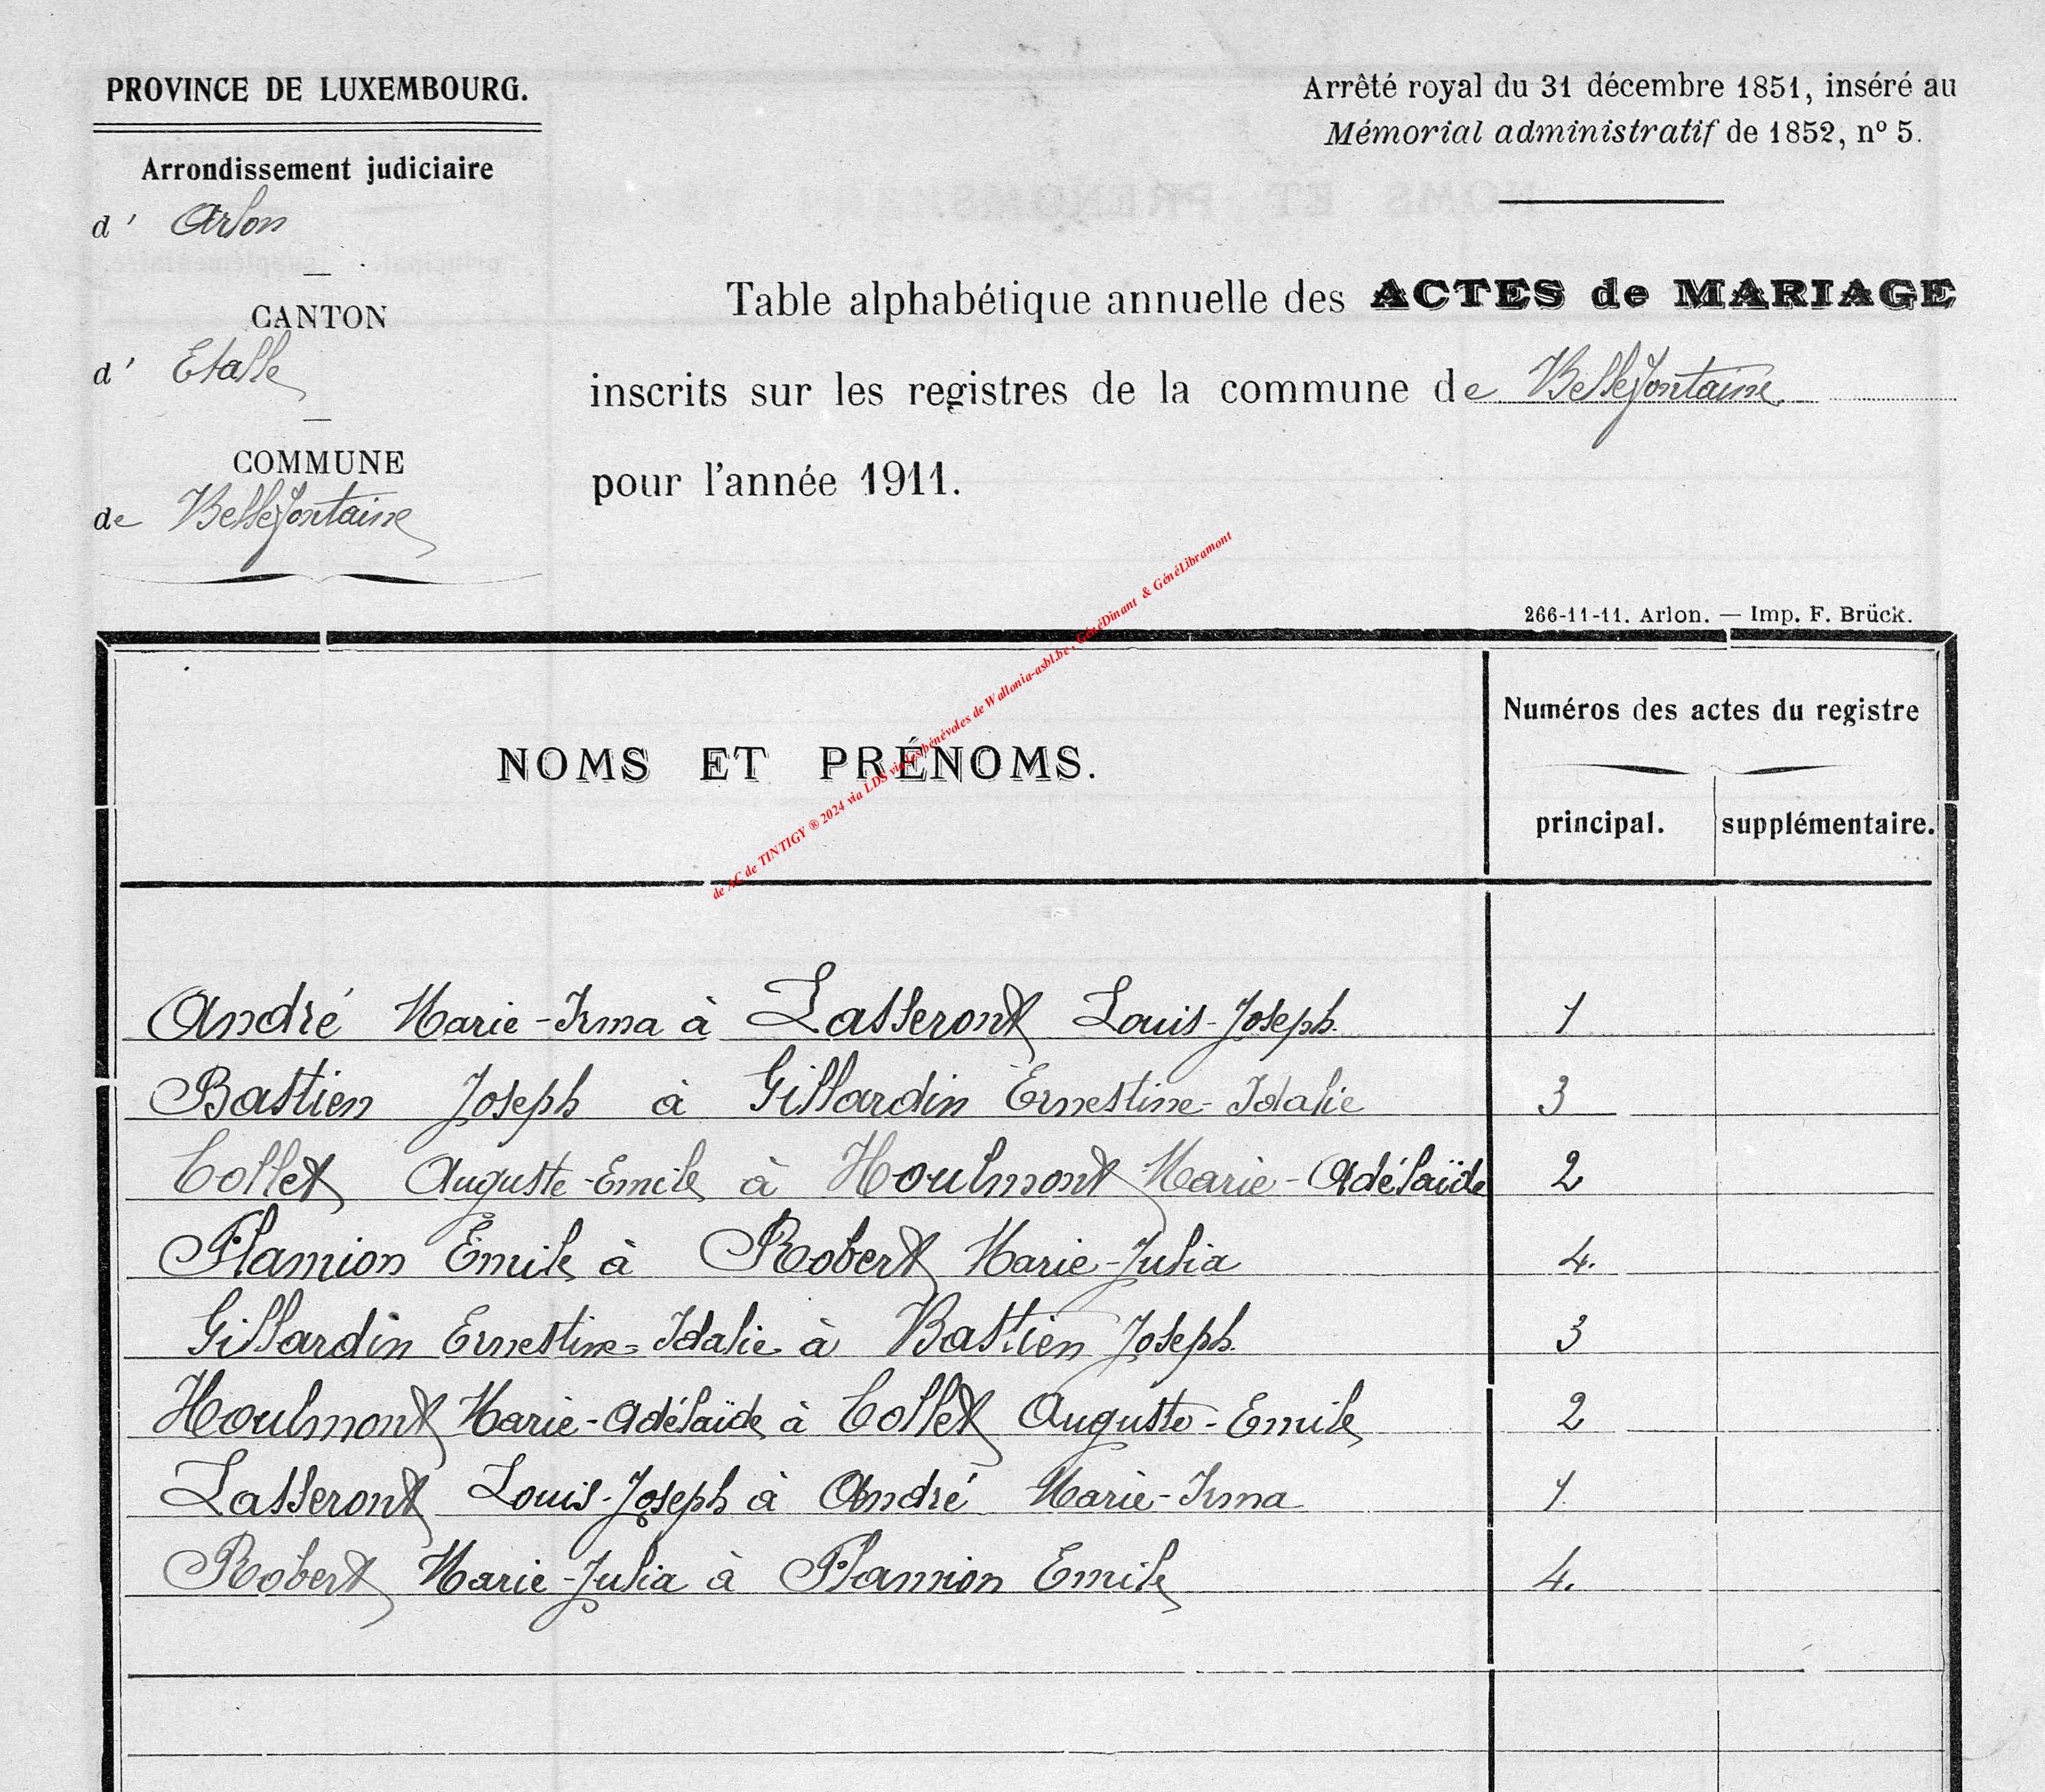 PROVINCE DE LUXEMBOURG.
Arrondissement judiciaire
d' Arlon
CANTON
d' Etalle
COMMUNE
de Bellefontaine
Arrêté royal du 31 décembre 1851, inséré au
Mémorial administratif de 1852, nº 5.
Table alphabétique annuelle des ACTES de MARIAGE
inscrits sur les registres de la commune de Bellefontaine
pour l'année 1911.
266-11-11. Arlon. — Imp. F. Brück.
de AC de TINTIGY ® 2024 via LDS via les bénévoles de Wallonia-asbl.be, GénéDinant & GénéLibramont
NOMS ET PRÉNOMS.
Numéros des actes du registre
principal. supplémentaire.
André Marie-Irma à Lasseront Louis-Joseph. 1
Bastien Joseph à Gillardin Ernestine-Idalie 3
Collet Auguste-Emile à Houlmont Marie-Adélaïde 2
Flamion Emile à Robert Marie-Julia 4.
Gillardin Ernestine=Idalie à Bastien Joseph. 3
Houlmont Marie-Adélaïde à Collet Auguste-Emile 2
Lasseront Louis-Joseph à André Marie-Irma 1
Robert Marie-Julia à Flamion Emile 4.